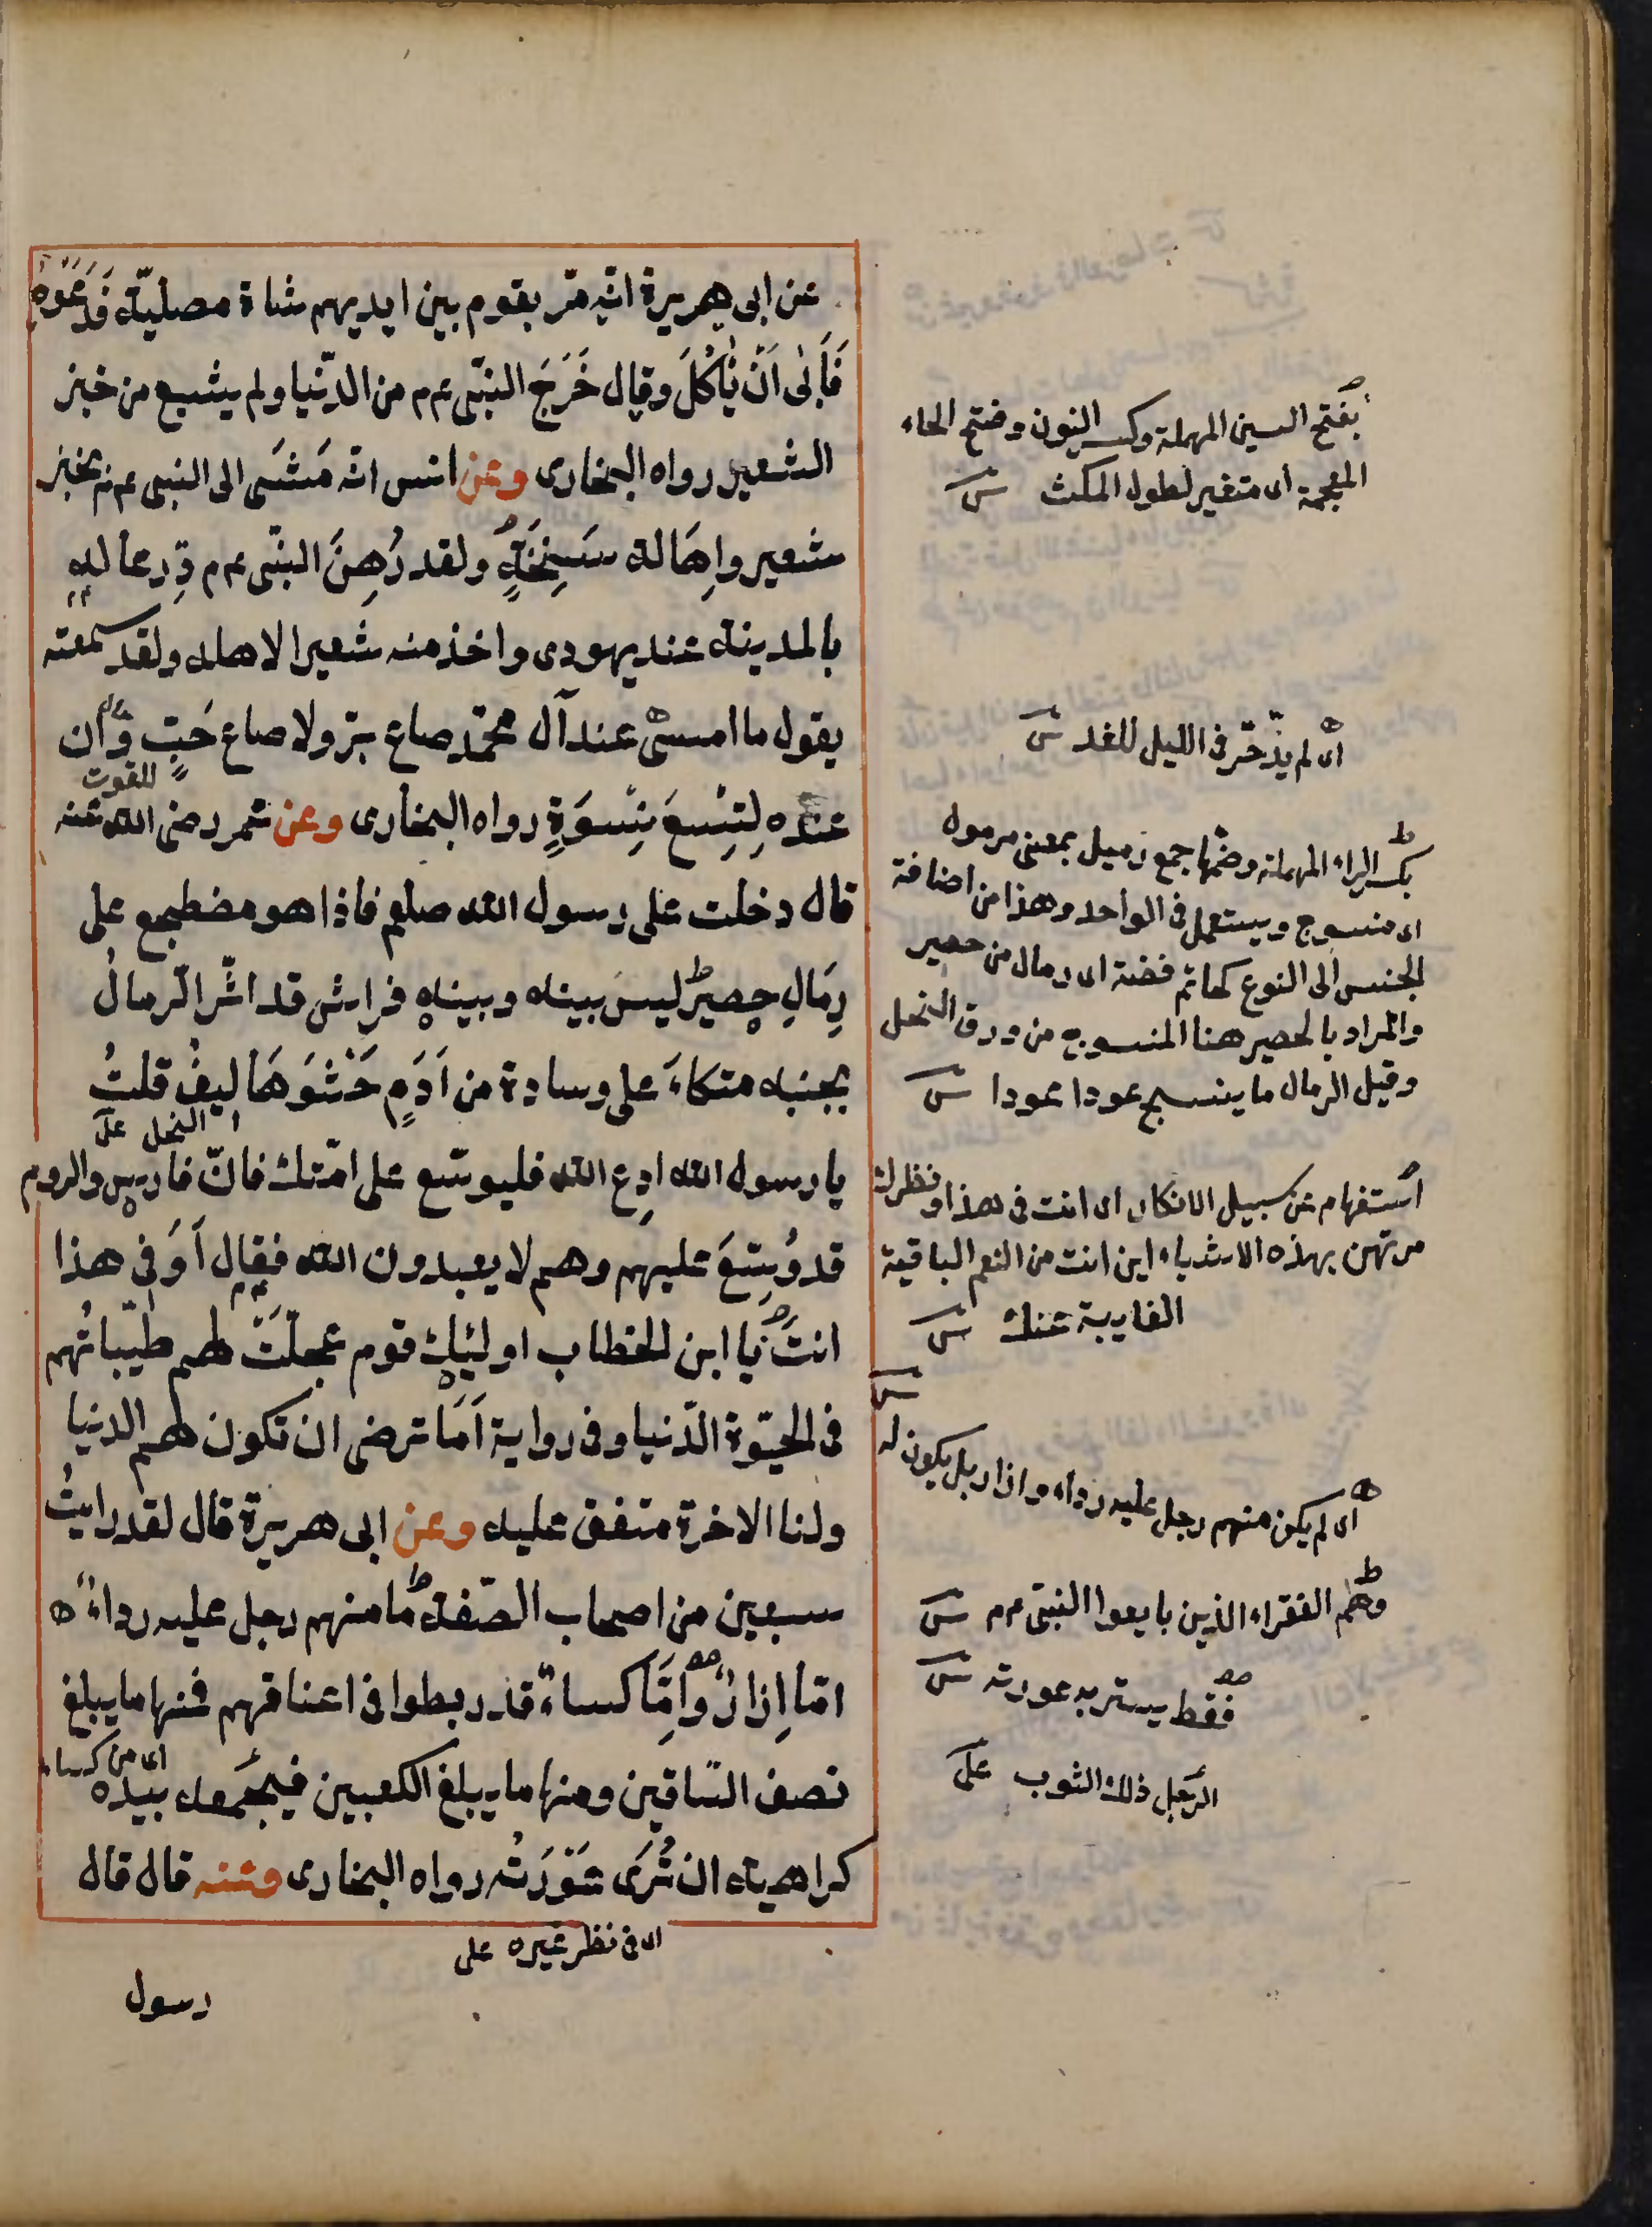 عن ابى هريرة انّه مرّ بقوم بين ايديهم شاة مصليّة فَدَعَوْهُ
فَأَبٰى اَنْ يَأْكُلَ وقال خَرَجَ النبّى عم م من الدّنيا ولم يشبع من خبز
الشعير رواه البخارى وعن انس انّه مَشَى الى النبى عم م بخبز
شعير واِهَالة سَنِخَةٍ ولقد رُهِنَ النبّى عم م دِرعا له
بالمدينة عند يهودى واخذ منه شعيرا لاهله ولقد سمعته
يقول ما امسىٰ عند آل محمّد صاع برّ ولا صاع حَبٍّ وَاِنّ
للقوت
عنده لِتِسْعَ نِسْوَةٍ رواه البخارى وعن عمر رضى الله عنه
قال دخلت على رسول الله صلعم فاذا هو مضطجع على
رِمَالِ حصيرٍ ليس بينه وبينه فراش قد اثّر الرّمالُ
بجنبه متكاءَ على وسادة من اَدَمٍ حَشْوَهَا ليفُ قلتُ
النخل على
يا رسول الله ادعِ الله فليوسّع على امّتك فانّ فارس والروم
قد وُسِّعَ عليهم وهم لا يعبدون الله فقال أَوَفى هذا
انتَ يَا ابن الخطاب اولئِك قوم عجلّتَ لهم طيّباتُهم
فى الحيّوة الدّنيا وفى رواية اَمَا ترضى ان تكون لهم الدنيا
ولنا الاخرة متفق عليه وعن ابى هريرة قال لقد رايتُ
سبعين من اصحاب الصّفة ما منهم رجل عليه رداءٌ
امّا اِزارٌ وَاِمَّا كساءٌ قد ربطوا فى اعناقهم فمنها ما يبلغ
اى من كساء
نصف السّاقين ومنها ما يبلغ الكعبين فيجمَعه بيده
كراهية ان تُرَى عَوْرَتُه رواه البخارى وعنه قال قال
اى فى نظر غيره على
رسول
بفتح السين المهملة وكسر النون وفتح الخاء
المعجمة اى متغير لطول المكث
اى لم يذّخر فى الليل للغد
بكسر الراء المهملة وضمّها جمع رميل بمعنى مرمول
اى منسوج ويستعمل فى الواحد وهذا من اضافة
الجنس الى النوع كخاتم فضة اى رمال من حصير
والمراد بالحصير هنا المنسوج من ورق النخل
وقيل الرمال ما ينسج عودا عودا
استفهام عن سبيل الانكار اى انت فى هذا ونظرك
مرتهن بهذه الاشياء اين انت من النعم الباقية
الغايبة عنك
اى لم يكن منهم رجل عليه رداء وازار بل يكون له
وهم الفقراء الذين بايعوا النبّى عم م
فقط يستر به عورته
الرّجل ذلك الثوب على